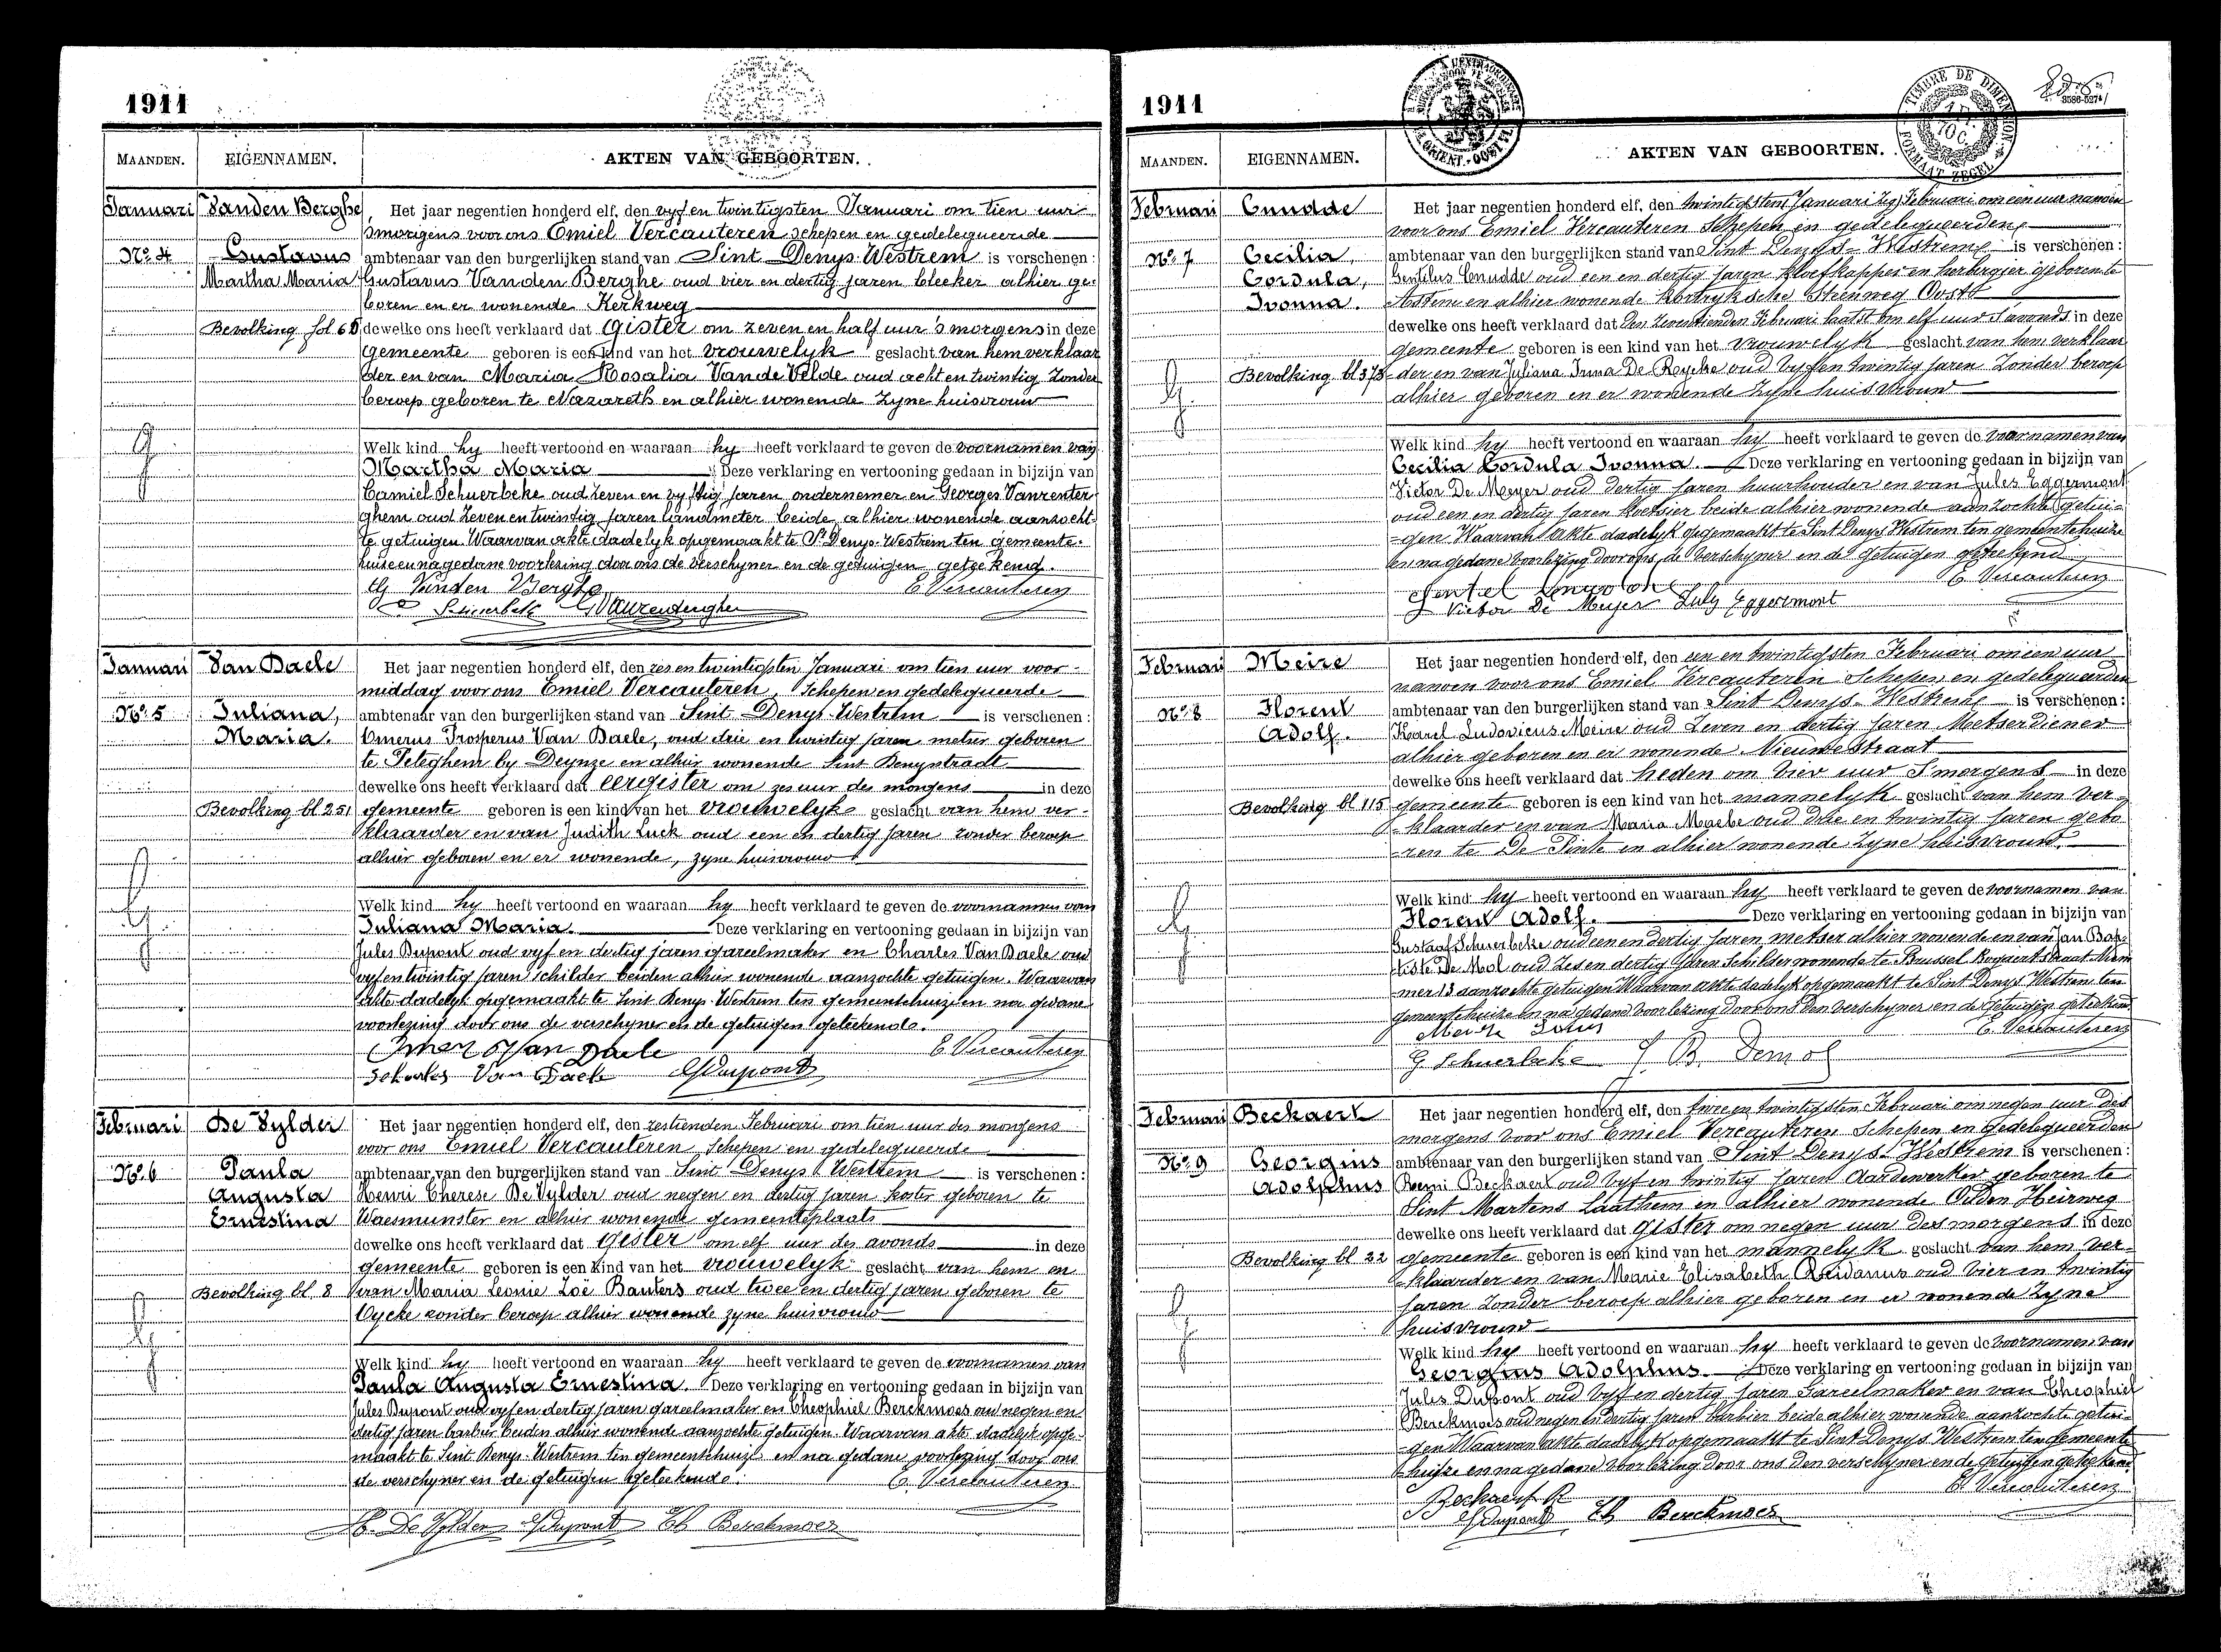 1911
MAANDEN. EIGENNAMEN. AKTEN VAN GEBOORTEN.
Januari Vanden Berghe,
No. 4 Gustavus
Martha Maria
Bevolking fol 65
Het jaar negentien honderd elf, den vyf en twintigsten Januari om tien uur
smorgens voor ons Emiel Vercauteren schepen en gedelegueerde
ambtenaar van den burgerlijken stand van Sint Denys-Westrem is verschenen:
Gustavus Vanden Berghe oud vier en dertig jaren bleeker alhier ge-
boren en er wonende Kerkweg
dewelke ons heeft verklaard dat gister om zeven en half uur 's morgens in deze
gemeente geboren is een kind van het vrouwelyk geslacht van hem verklaar
der en van Maria Rosalia Van de Velde oud acht en twintig zonder
beroep geboren te Nazareth en alhier wonende zyne huisvrouw
Welk kind hy heeft vertoond en waaraan hy heeft verklaard te geven de voornamen van
Martha Maria Deze verklaring en vertooning gedaan in bijzijn van
Camiel Schuerbeke oud zeven en vyftig jaren ondernemer en Georges Vanrenter-
ghem oud zeven en twintig jaren landmeter beide alhier wonende aanzocht-
te getuigen. Waarvan akte dadelyk opgemaakt te St Denys-Westrem ten gemeente-
huize en na gedane voorlezing door ons de verschyner en de getuigen geteekend.
G Vanden Berghe E Vercauteren
C Schuerbeke G Vanrenterghem
Januari Van Daele
No. 5 Juliana,
Maria.
Bevolking bl 251
Het jaar negentien honderd elf, den zes en twintigsten Januari om tien uur voor-
middag voor ons Emiel Vercauteren, schepen en gedelegueerde
ambtenaar van den burgerlijken stand van Sint Denys-Westrem is verschenen:
Omerus Prosperus Van Daele, oud drie en twintig jaren metser geboren
te Peteghem by Deynze en alhier wonende Sint Denysstradt
dewelke ons heeft verklaard dat eergister om zes uur des morgens in deze
gemeente geboren is een kind van het vrouwelyk geslacht van hem ver-
klaarder en van Judith Luck oud een en dertig jaren zonder beroep
alhier geboren en er wonende, zyne huisvrouw
Welk kind hy heeft vertoond en waaraan hy heeft verklaard te geven de voornamen van
Juliana Maria. Deze verklaring en vertooning gedaan in bijzijn van
Jules Dupont oud vyf en dertig jaren gareelmaker en Charles Van Daele oud
vyf en twintig jaren schilder beiden alhier wonende aanzochte getuigen. Waarvan
akte dadelyk opgemaakt te Sint Denys-Westrem ten gemeentehuize en na gedane
voorlezing door ons de verschyner en de getuigen geteekende.
Omer Van Daele E Vercauteren
Scharles Van Daele J Dupont
Februari De Vylder
No. 6 Paula
Augusta
Ernestina
Bevolking bl. 8
Het jaar negentien honderd elf, den zestienden Februari om tien uur des morgens
voor ons Emiel Vercauteren Schepen en gedelegueerde
ambtenaar van den burgerlijken stand van Sint Denys Westrem is verschenen:
Henri Therese De Vylder oud negen en dertig jaren koster geboren te
Waesmunster en alhier wonende gemeenteplaats
dewelke ons heeft verklaard dat gister om elf uur des avonds in deze
gemeente geboren is een kind van het vrouwelyk geslacht van hem en
van Maria Leonie Zoë Bauters oud twee en dertig jaren geboren te
Oycke zonder beroep alhier wonende zyne huisvrouw
Welk kind hy heeft vertoond en waaraan hy heeft verklaard te geven de voornamen van
Paula Augusta Ernestina. Deze verklaring en vertooning gedaan in bijzijn van
Jules Dupont oud vyf en dertig jaren gareelmaker en Theophiel Berckmoes oud negen en
dertig jaren barbier beiden alhier wonende aanzochte getuigen. Waarvan akte dadelyk opge-
maakt te Sint Denys-Westrem ten gemeentehuize en na gedane voorlezing door ons
de verschyner en de getuigen geteekende. E. Vercauteren
H. De Vylder J Dupont Th Berckmoes
1911
MAANDEN. EIGENNAMEN. AKTEN VAN GEBOORTEN.
TIMBRE DE DIMENSION
FORMAAT ZEGEL
Februari Cnudde
No. 7 Cecilia,
Cordula,
Ivonna.
Bevolking bl 373
Het jaar negentien honderd elf, den twintigsten Januari zeg Februari om een uur namoen
voor ons Emiel Vercauteren Schepen en gedelegueerden
ambtenaar van den burgerlijken stand van Sint Denys-Westrem is verschenen:
Gentilus Cnudde oud een en dertig jaren kloefkapper en herbergier geboren te
Astene en alhier wonende Kortryksche Steenweg Oost
dewelke ons heeft verklaard dat den zeventienden Februari laatst om elf uur s'avonds in deze
gemeente geboren is een kind van het vrouwelyk geslacht van hem verklaar
der en van Juliana Irma De Reycke oud vyf en twintig jaren zonder beroep
alhier geboren en er wonende zyne huisvrouw
Welk kind hy heeft vertoond en waaraan hy heeft verklaard te geven de voornamen van
Cecilia Cordula Ivonna. Deze verklaring en vertooning gedaan in bijzijn van
Victor De Meyer oud dertig jaren huurhouder en van Jules Eggermont
oud een en dertig jaren koetsier beide alhier wonende aanzochte getui-
-gen. Waarvan akte dadelyk opgemaakt te Sint Denys Westrem ten gemeentehuize
en na gedane voorlezing door ons, de verschyner en de getuigen geteekend
E. Vercauteren
Gentiel Cnudde
Victor De Meyer July Eggermont
Februari Meire
No. 8 Florent
Adolf.
Bevolking bl 115
Het jaar negentien honderd elf, den een en twintigsten Februari om een uur
namoen voor ons Emiel Vercauteren Schepen en gedelegueerden
ambtenaar van den burgerlijken stand van Sint Denys-Westrem is verschenen:
Karel Ludovicus Meire oud zeven en dertig jaren Metserdiener
alhier geboren en er wonende Nieuwestraat
dewelke ons heeft verklaard dat heden om vier uur s'morgens in deze
gemeente geboren is een kind van het mannelyk geslacht van hem ver-
-klaarder en van Maria Maebe oud drie en twintig jaren gebo
-ren te De Pinte en alhier wonende zyne huisvrouw.
Welk kind hy heeft vertoond en waaraan hy heeft verklaard te geven de voornamen van
Florent Adolf. Deze verklaring en vertooning gedaan in bijzijn van
Gustaaf Schuerbeke oud een en dertig jaren metser alhier wonende en van Jan Bap-
tiste De Mol oud zes en dertig jaren Schilder wonende te Brussel Bogaertstraat Num
-mer 13 aanzochte getuigen Waarvan akte dadelyk opgemaakt te Sint Denys Westrem ten
gemeentehuize en na gedane voorlezing door ons den verschyner en de getuigen geteekend
Meire E. Vercauteren
G. Schuerbeke J. B. Demol
Februari Beckaert
No. 9 Georgius
Adolphus
Bevolking bl 22
Het jaar negentien honderd elf, den twee en twintigsten Februari om negen uur des
morgens voor ons Emiel Vercauteren Schepen en gedelegueerden
ambtenaar van den burgerlijken stand van Sint Denys-Westrem is verschenen:
Remi Beckaert oud vyf en twintig jaren Aardewerker geboren te
Sint Martens Laathem en alhier wonende Ouden Heirweg
dewelke ons heeft verklaard dat gister om negen uur des morgens in deze
gemeente geboren is een kind van het mannelyk geslacht van hem ver-
-klaarder en van Marie Elisabeth Quidanus oud vier en twintig
jaren zonder beroep alhier geboren en er wonende zyne
huisvrouw
Welk kind hy heeft vertoond en waaraan hy heeft verklaard te geven de voornamen van
Georgius Adolphus. Deze verklaring en vertooning gedaan in bijzijn van
Jules Dupont oud vyf en dertig jaren Gareelmaker en van Theophiel
Berckmoes oud negen en dertig jaren barbier beide alhier wonende aanzochte getui-
-gen Waarvan akte dadelyk opgemaakt te Sint Denys Westrem ten gemeente
huize en na gedane voorlezing door ons den verschyner en de getuigen geteekend
E. Vercauteren
Beckaert R
J Dupont Th Berckmoes